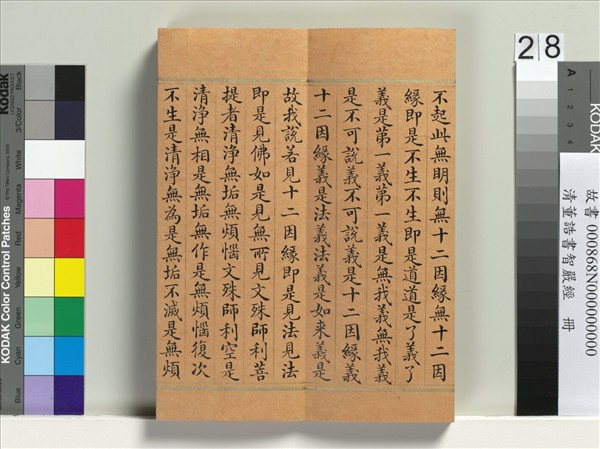 不起此無明則無十二因緣無十二因
緣即是不生不生即是道道是了義了
義是第一義第一義是無我義無我義
是不可說義不可說義是十二因緣義
十二因緣義是法義法義是如来義是
故我說若見十二因緣即是見法見法
即是見佛如是見無所見文殊師利菩
提者清淨無垢無煩惱文殊師利空是
清淨無相是無垢無作是無煩惱復次
不生是清淨無為是無垢不滅是無煩
28
故書 000868N000000000
清董誥書智嚴經 冊
A 1 2 3 4
KODAK
Kodak
KODAK Color Control Patches
Black
3/Color
White
Magenta
Red
Yellow
Green
Cyan
Blue